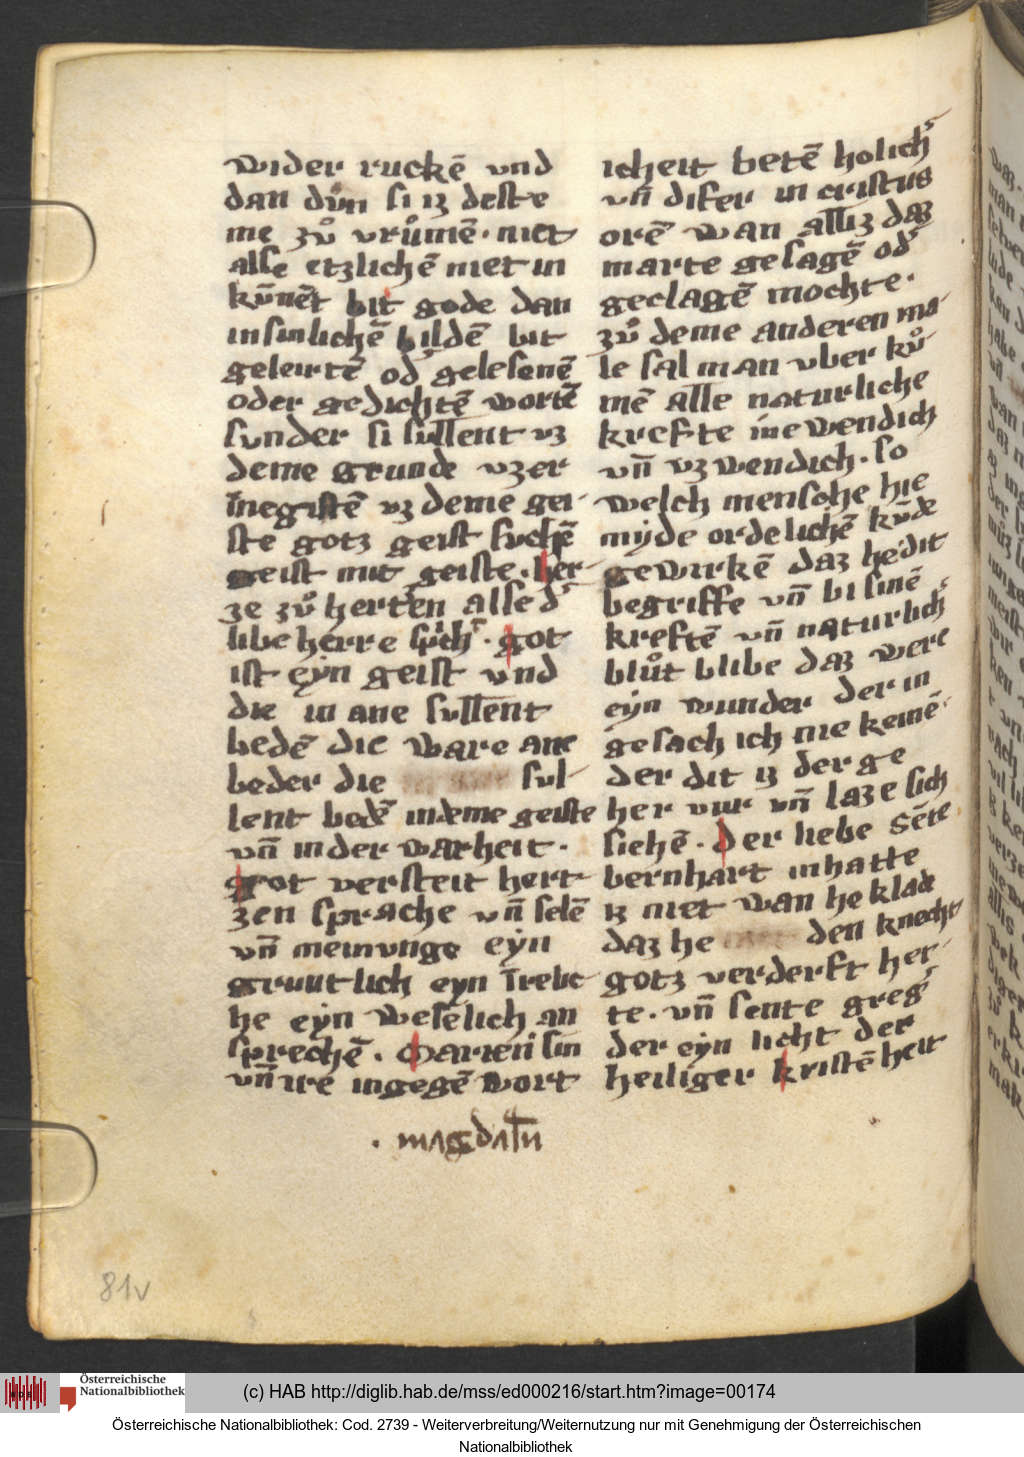 wider ruckē vnd
dan dvͦn si iz deste
me zvͦ vrvͦmē · niet
alse etzlichē niet in
kv̄nēt bit gode dan
in sinlichē bildē bit
geleirtē od᾽ gelesenē
oder gedichtē wortē
sunder si sullent vz
deme grunde vzer
inegistē vz deme gei-
ste gotz geist suchē
geist mit geiste · her-
ze zvͦ herten alse d᾽
libe herre sp̄ch᾽ · got
ist eyn geist vnd
die in ane sullent
bedē die ware ane
beder die sul-
lent bedē in deme geiste
vn̄ in der warheit ·
got versteit hert-
zen sprache vn̄ selē
vn̄ meinunge eyn
gruntlich eyn
he eyn weselich an
sprechē · Marien sin
vn̄ ire ingegē wort
· magdalū
icheit betē holich᾽
vn̄ diser in cristus
orē wan alliz daz
marte gesagē od᾽
geclagē mochte ·
zvͦ deme anderen ma-
le sal man vber kvͦ-
mē alle naturliche
krefte inewendich
vn̄ vzwendich · so
welch mensche hie
myde ordelichē kv̄de
gewirkē daz he dit
begriffe vn̄ bi sinē
kreftē vn̄ naturlich᾽
blvͦt blibe daz were
eyn wunder der in
gesach ich nie keinē ·
der dit iz der ge
her vur vn̄ laze sich
siehē · der liebe sēte
bernhart in hatte
iz niet wan he klade
daz he den knecht
gotz verderft her-
te · vn̄ sente greg᾽
der eyn licht der
heiliger kristēheit
81v
Österreichische
Nationalbibliothek
(c) HAB http://diglib.hab.de/mss/ed000216/start.htm?image=00174
Österreichische Nationalbibliothek: Cod. 2739 - Weiterverbreitung/Weiternutzung nur mit Genehmigung der Österreichischen
Nationalbibliothek